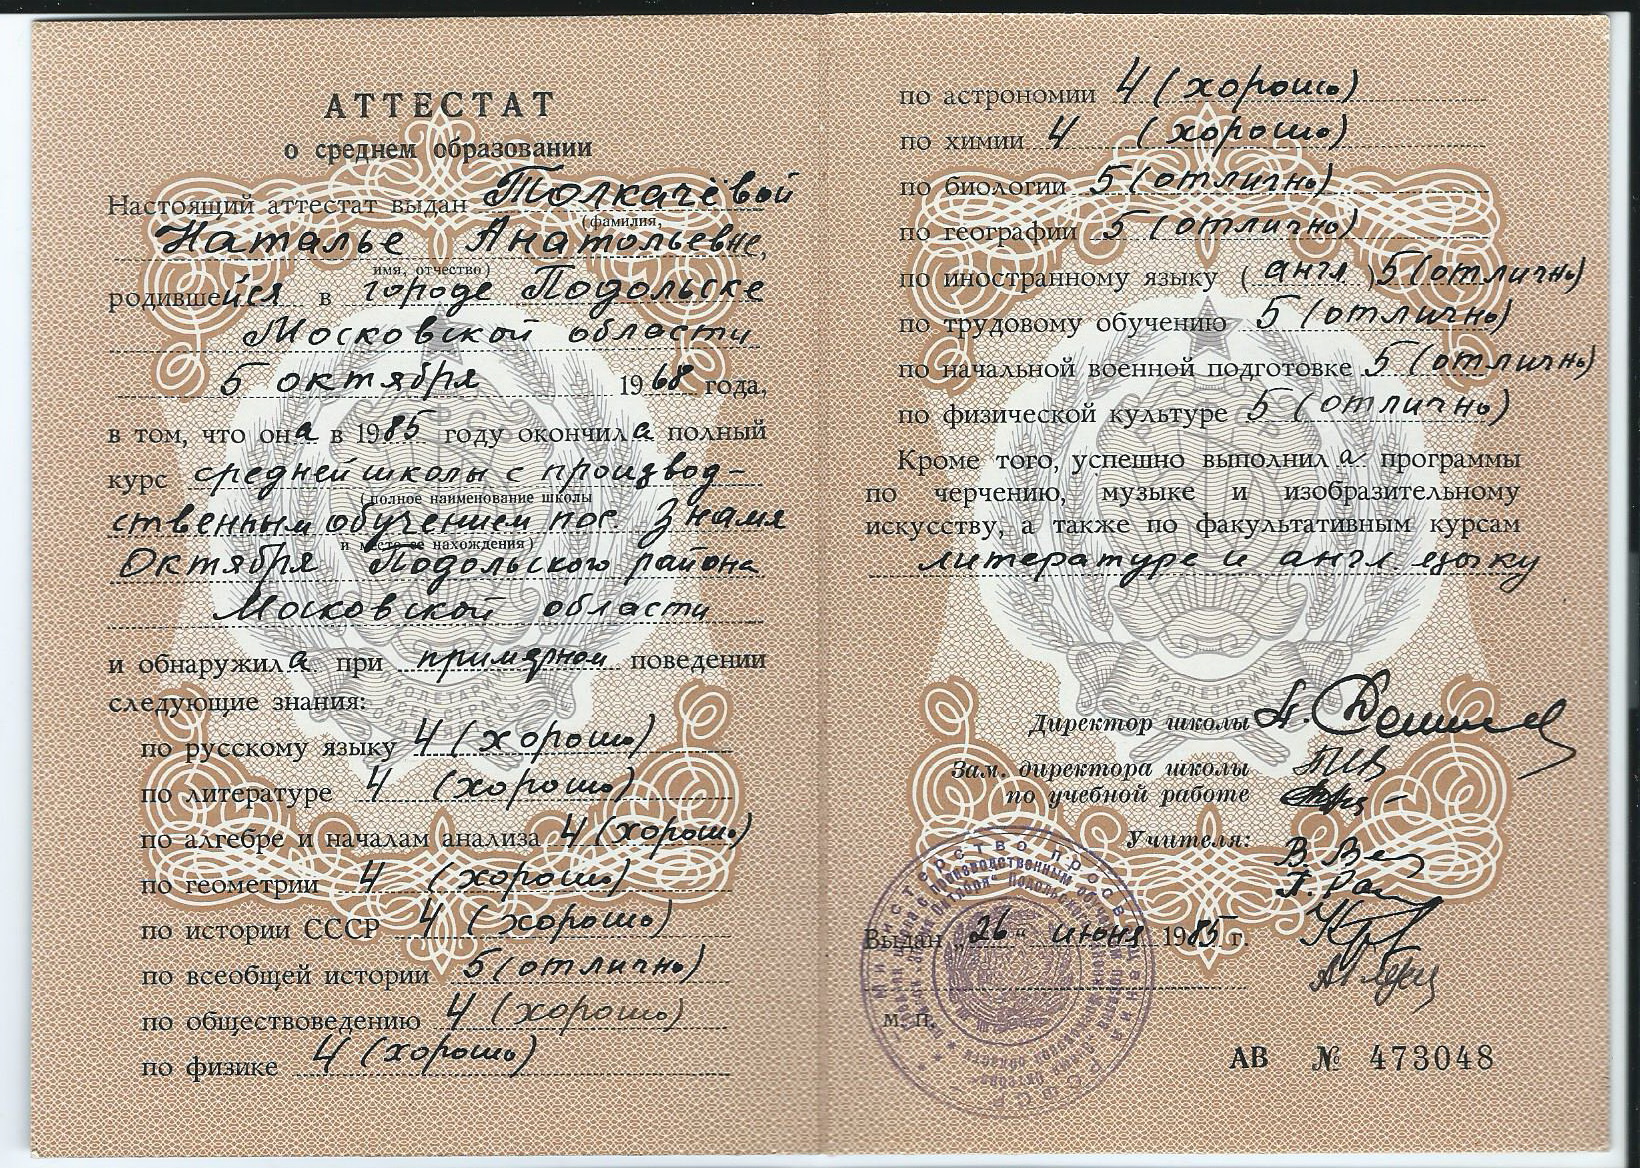 АТТЕСТАТ
о среднем образовании
Настоящий аттестат выдан Толкачёвой
(фамилия,
Наталье Анатольевне,
имя, отчество)
родившейся в городе Подольске
Московской области
5 октября 1968 года,
в том, что она в 1985 году окончила полный
курс средней школы с производ-
(полное наименование школы
ственным обучением пос. Знамя
и место ее нахождения)
Октября Подольского района
Московской области
и обнаружила при примерном поведении
следующие знания:
по русскому языку 4 (хорошо)
по литературе 4 (хорошо)
по алгебре и началам анализа 4 (хорошо)
по геометрии 4 (хорошо)
по истории СССР 4 (хорошо)
по всеобщей истории 5 (отлично)
по обществоведению 4 (хорошо)
по физике 4 (хорошо)
по астрономии 4 (хорошо)
по химии 4 (хорошо)
по биологии 5 (отлично)
по географии 5 (отлично)
по иностранному языку (англ.) 5 (отлично)
по трудовому обучению 5 (отлично)
по начальной военной подготовке 5 (отлично)
по физической культуре 5 (отлично)
Кроме того, успешно выполнила программы
по черчению, музыке и изобразительному
искусству, а также по факультативным курсам
литературе и англ. языку
Директор школы
Зам. директора школы
по учебной работе
Учителя:
Выдан „26" июня 1985 г.
м. п.
АВ № 473048